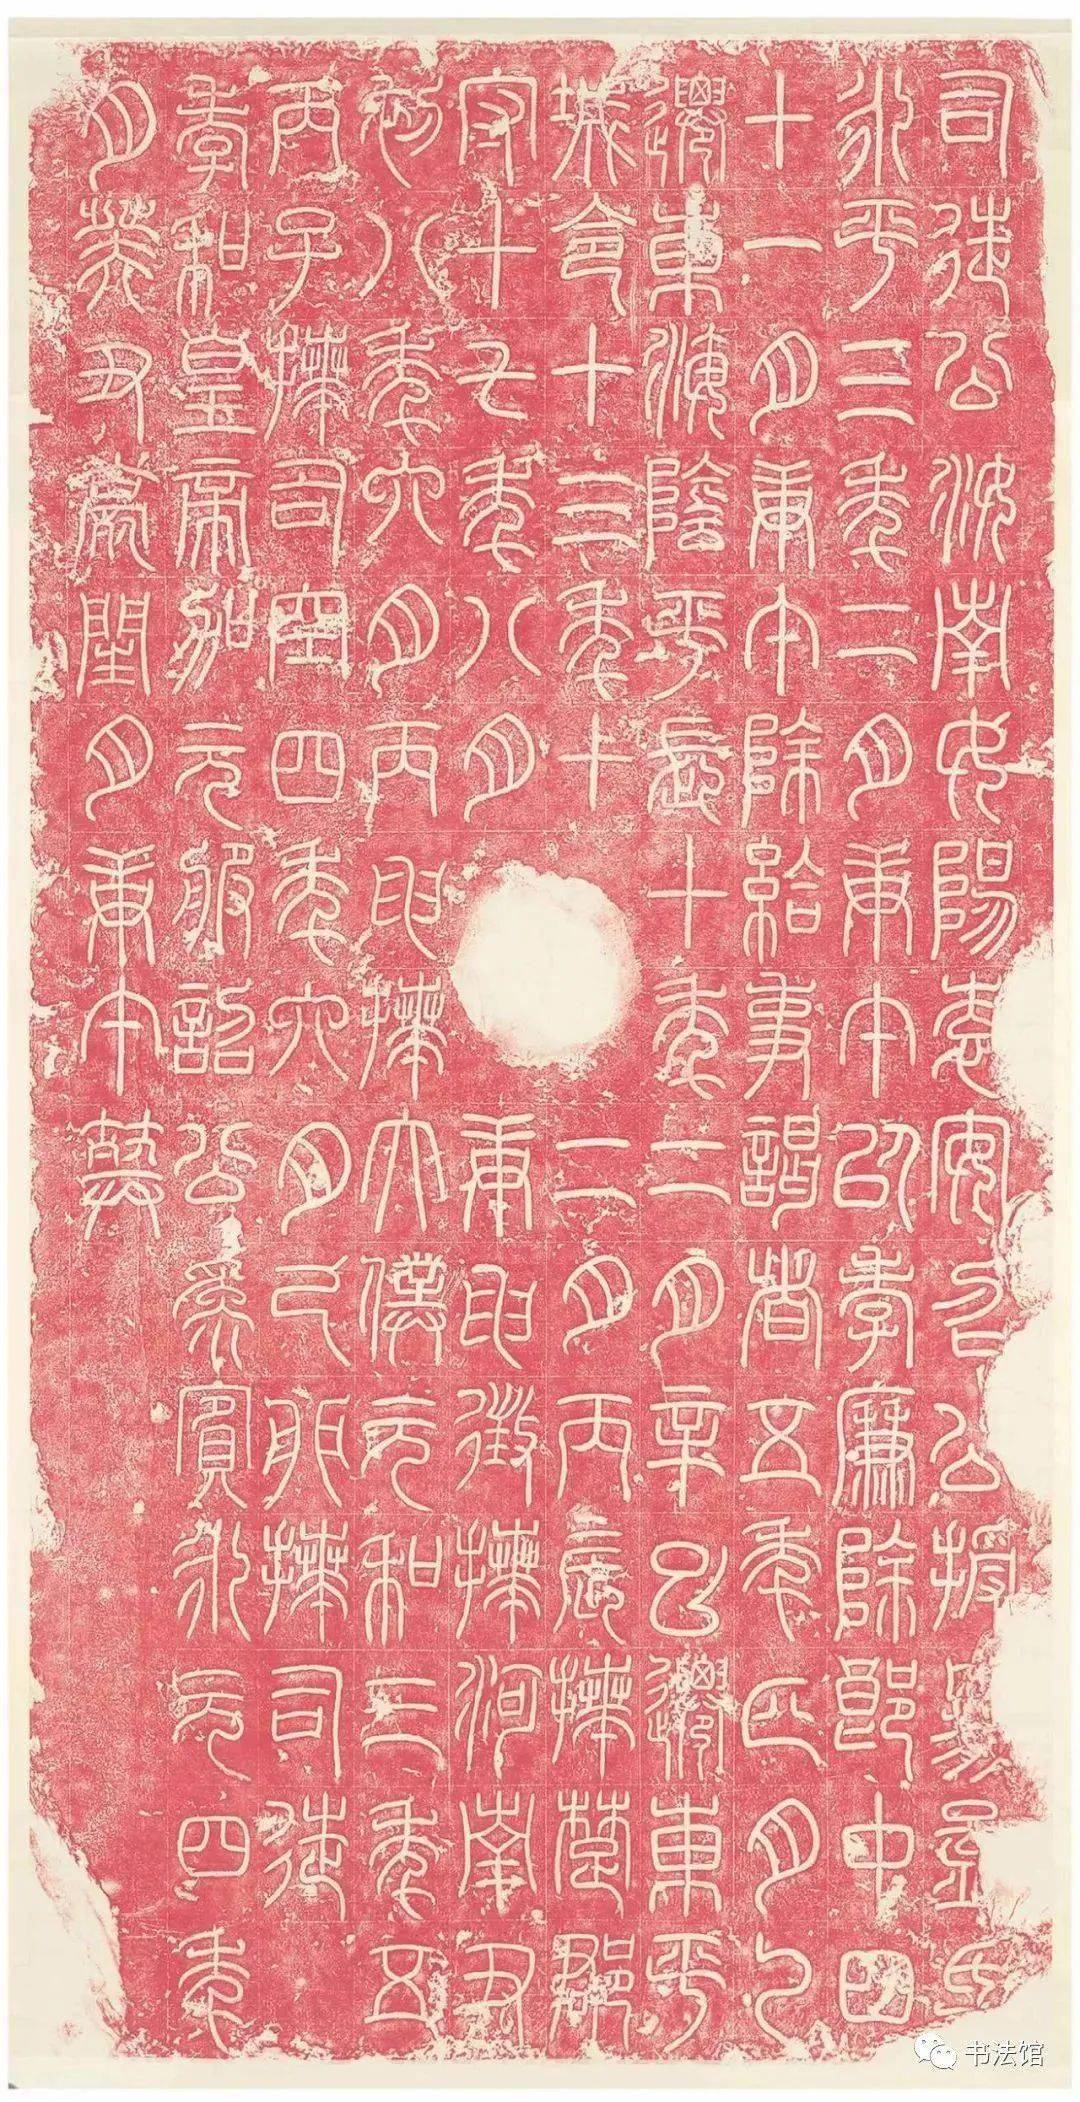 司徒公汝南女陽袁安召公授易孟氏
永平三年二月庚午以孝廉除郎中四
十一月庚午除給事謁者五年正月乙
遷東海陰平長十年二月辛巳遷東平
城令十三年十二月丙辰拜楚郡
守十七年八月庚申徵拜河南尹
初八年六月丙申拜太僕元和三年五
丙子拜司空四年六月己卯拜司徒
孝和皇帝加元服詔公為賓永元四年
月癸丑薨閏月庚午葬
书法馆